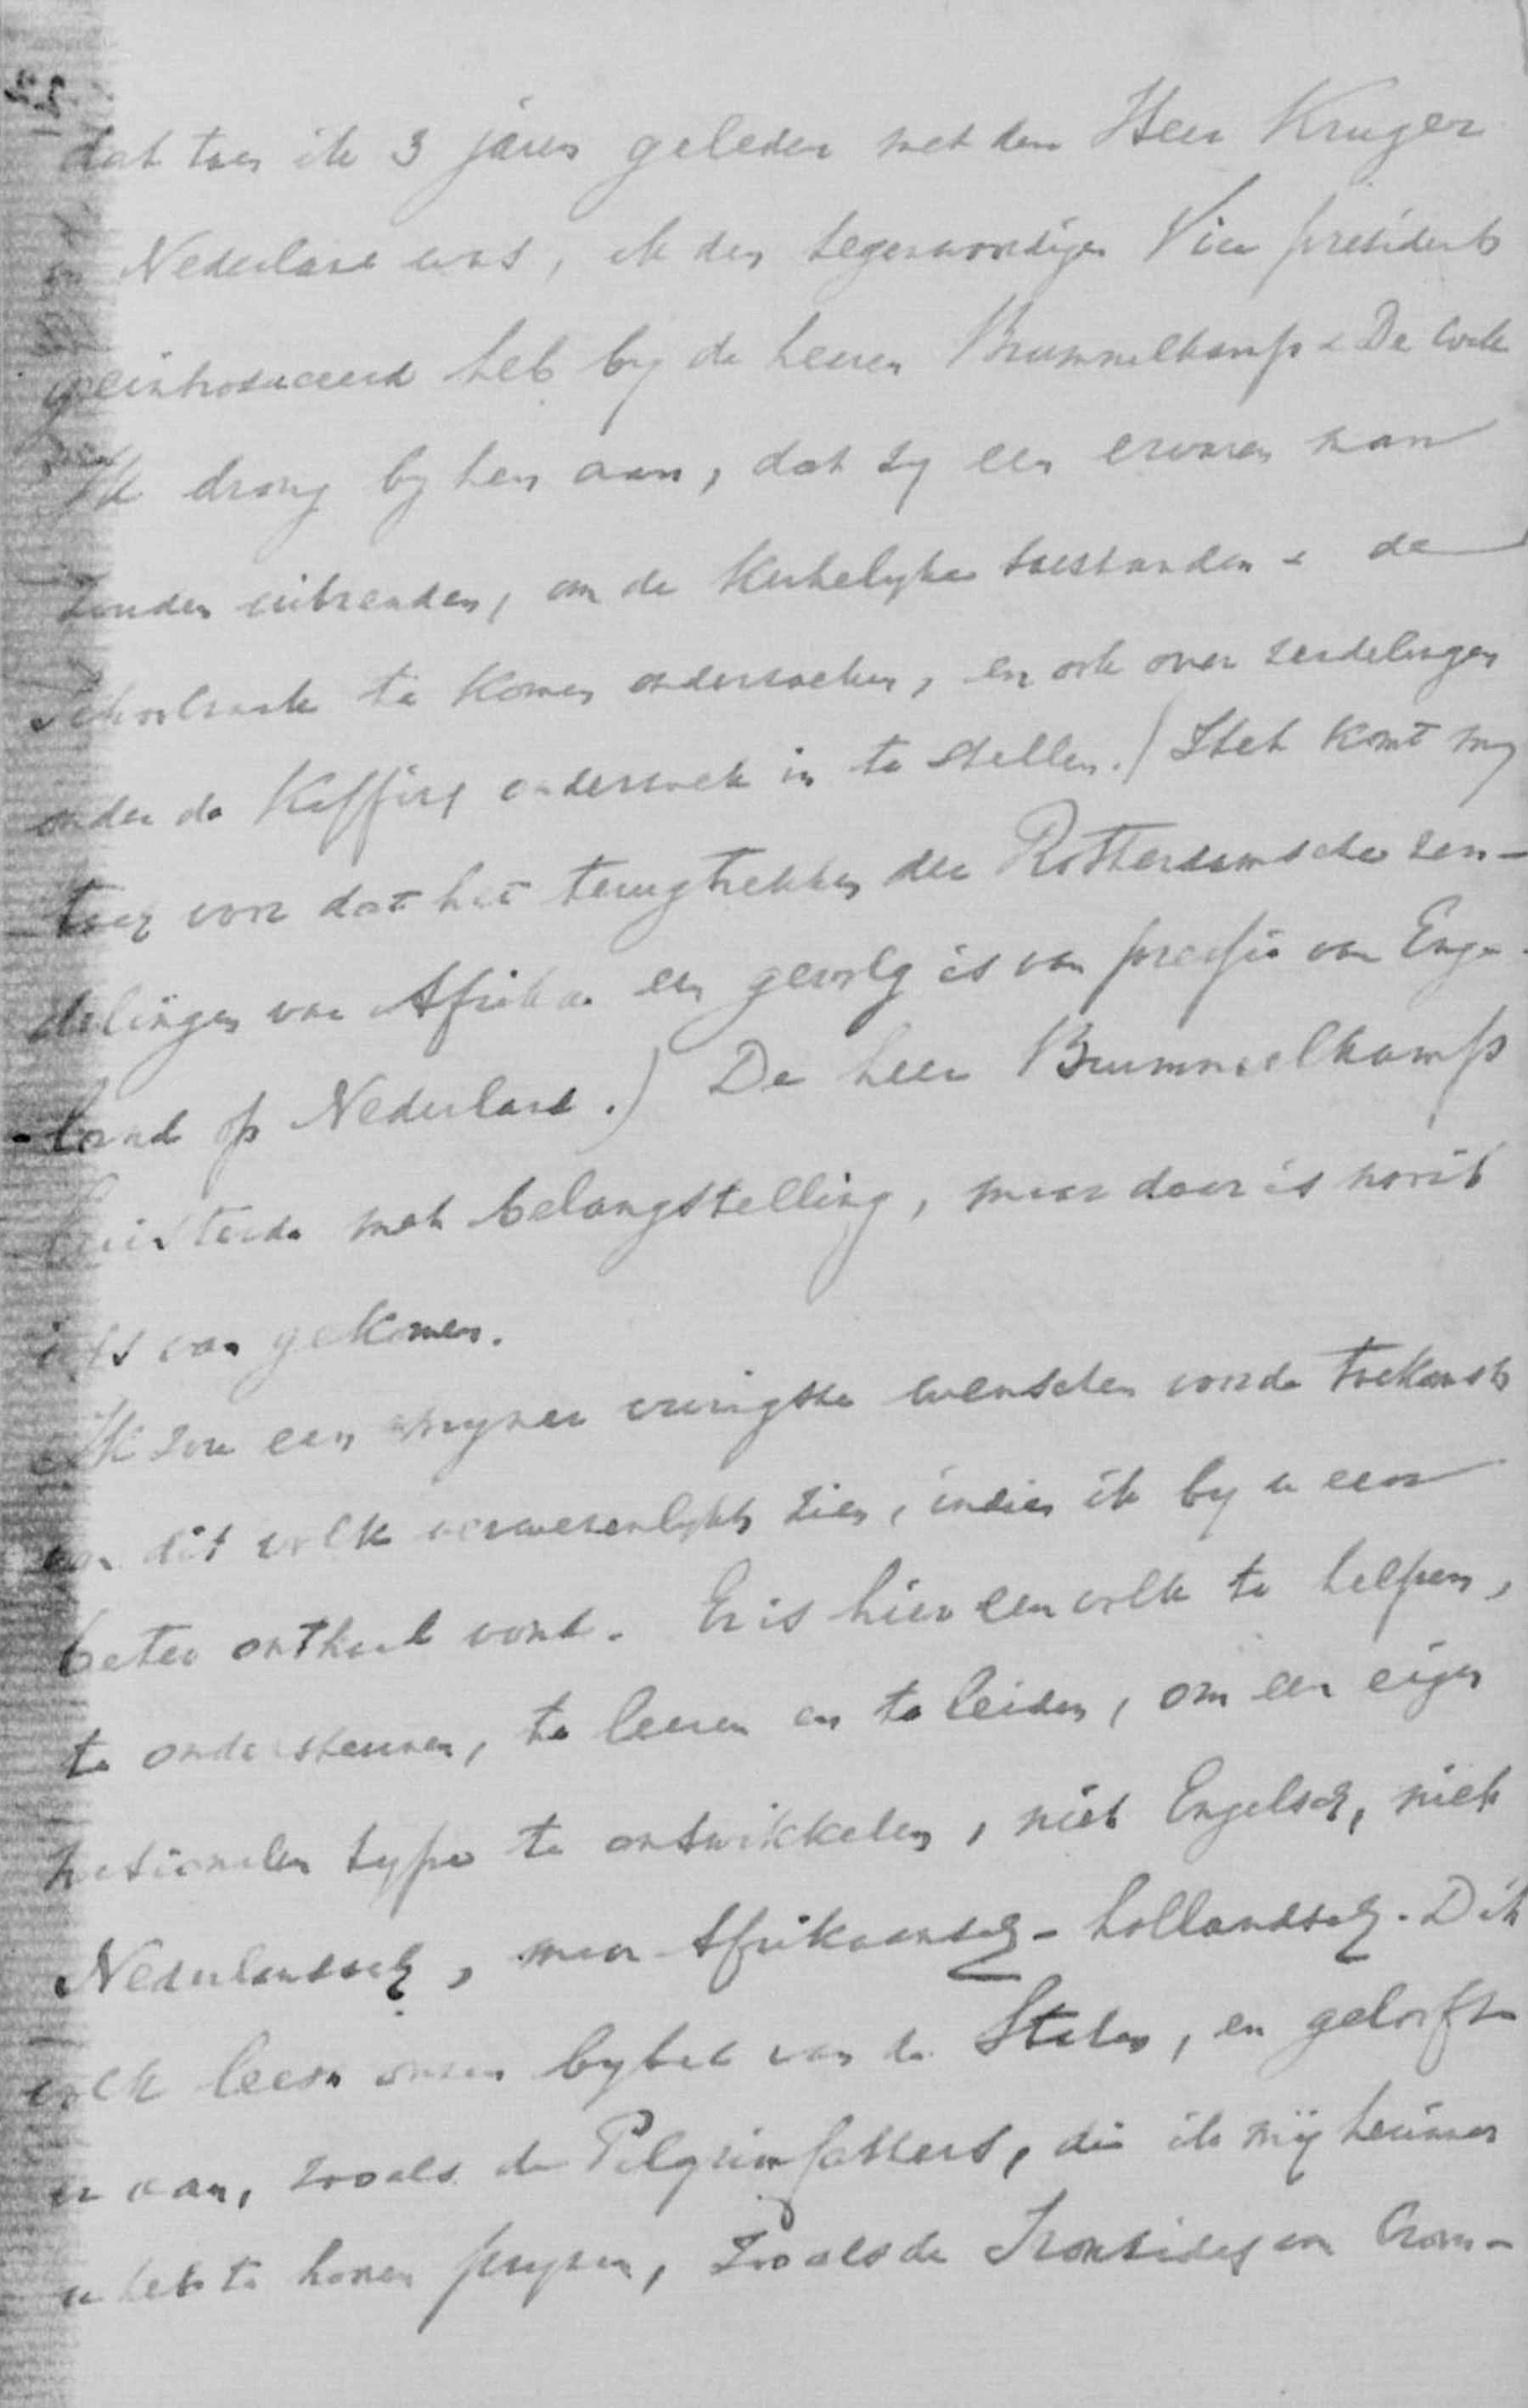 dat toen ik 3 jaren geleden met den Heer Kruger
in Nederland was, ik den tegenwoordigen Vice president
geintroduceerd heb by de heeren Brummelkamp & De Cock
Ik drong by hen aan, dat zy een ervaren man
zouden uitzenden, om de Kerkelyke toestanden & de
schoolzaak te komen onderzoeken, en ook over zendelingen
onder de Kaffirs onderzoek in te stellen. (Het komt my
toch voor dat het terugtrekken der Rotterdamsche zen-
delingen van Afrika een gevolg is van pressie van Enge-
-land op Nederland.) De heer Brummelkamp
luisterde met belangstelling, maar daar is nooit
iets van gekomen.
Ik zou een myner vurigste wenschen voor de toekomst
van dit volk verwezenlykt zien, indien ik by u een
beter onthaal vond. Er is hier een volk te helpen,
te ondersteunen, te leeren en te leiden, om een eigen
nationalen type te ontwikkelen, niet Engelsch, niet
Nederlandsch, maar Afrikaansch-hollandsch. Dit
volk leest onzen bybel van de Staten, en gelooft
er aan, zooals de Pilgrimfathers, die ik mij herinner
u heb te hooren pryzen, zooals de Ironsides van Crom-